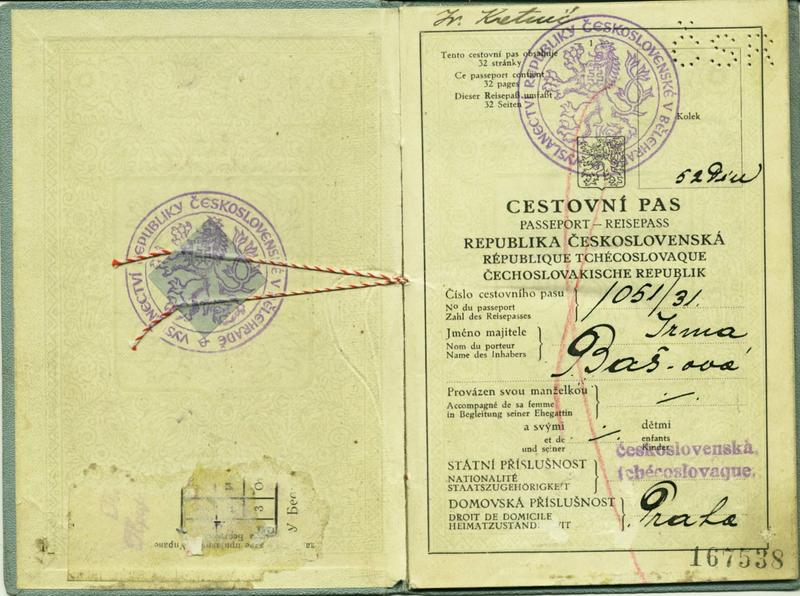 VYSLANECTVÍ REPUBLIKY ČESKOSLOVENSKÉ V BĚLEHRADĚ
у Бео
Tento cestovní pas obsahuje
32 stránky
Ce passeport contient
32 pages
Dieser Reisepaß umfaßt
32 Seiten
1
VYSLANECTVÍ REPUBLIKY ČESKOSLOVENSKÉ V BĚLEHRADĚ
ČSR
Kolek
52 Din
CESTOVNÍ PAS
PASSEPORT – REISEPASS
REPUBLIKA ČESKOSLOVENSKÁ
RÉPUBLIQUE TCHÉCOSLOVAQUE
ČECHOSLOVAKISCHE REPUBLIK
Číslo cestovního pasu
No du passeport
Zahl des Reisepasses
1051/31.
Jméno majitele
Nom du porteur
Name des Inhabers
Irma
Baš-ová
Provázen svou manželkou
Accompagné de sa femme
in Begleitung seiner Ehegattin
a svými dětmi
et de enfants
und seiner Kinder
STÁTNÍ PŘÍSLUŠNOST
NATIONALITÉ
STAATSZUGEHÖRIGKEIT
československá.
tchécoslovaque.
DOMOVSKÁ PŘÍSLUŠNOST
DROIT DE DOMICILE
HEIMATZUSTAND IT
Praha
167538